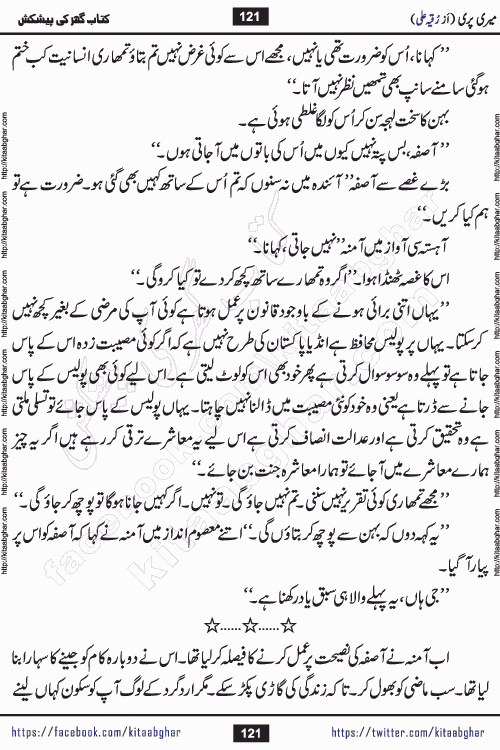 میری پری (از رُقیہ علی)
121
کتاب گھر کی پیشکش
’’کہا نا، اُس کو ضرورت تھی یا نہیں، مجھے اس سے کوئی غرض نہیں تم بتاؤ تمھاری انسانیت کب ختم
ہو گئی سامنے سانپ بھی تمھیں نظر نہیں آتا۔‘‘
بہن کا سخت لہجہ سن کر اُس کو لگا غلطی ہوئی ہے۔
’’آصفہ، بس پتہ نہیں کیوں میں اُس کی باتوں میں آ جاتی ہوں۔‘‘
بڑے غصے سے آصفہ ’’آئندہ میں نہ سنوں کہ تم اُس کے ساتھ کہیں بھی گئی ہو۔ ضرورت ہے تو
ہم کیا کریں۔‘‘
آہستہ سی آواز میں آمنہ ’’نہیں جاتی، کہا نا۔‘‘
اس کا غصہ ٹھنڈا ہوا۔ ’’اگر وہ تمھارے ساتھ کچھ کر دے تو کیا کرو گی۔‘‘
’’یہاں اتنی برائی ہونے کے باوجود قانون پر عمل ہوتا ہے کوئی آپ کی مرضی کے بغیر کچھ نہیں
کر سکتا۔ یہاں پر پولیس محافظ ہے انڈیا پاکستان کی طرح نہیں ہے کہ اگر کوئی مصیبت زدہ اس کے پاس
جاتا ہے تو پہلے وہ سو سو سوال کرتی ہے پھر خود بھی اس کو لوٹ لیتی ہے۔ اس لیے کوئی بھی پولیس کے پاس
جانے سے ڈرتا ہے یعنی وہ خود کو نئی مصیبت میں ڈالنا نہیں چاہتا۔ یہاں پولیس کے پاس جائے تو تسلی ملتی
ہے وہ تحقیق کرتی ہے اور عدالت انصاف کرتی ہے اس لیے یہ معاشرے ترقی کر رہے ہیں اگر یہ چیز
ہمارے معاشرے میں آ جائے تو ہمارا معاشرہ جنت بن جائے۔‘‘
’’مجھے تمھاری کوئی تقریر نہیں سننی۔ تم نہیں جاؤ گی۔ تو نہیں۔ اگر کہیں جانا ہو گا تو پوچھ کر جاؤ گی۔‘‘
’’یہ کہہ دوں کہ بہن سے پوچھ کر بتاؤں گی۔‘‘ اتنے معصوم انداز میں آمنہ نے کہا کہ آصفہ کو اس پر
پیار آ گیا۔
’’جی ہاں، یہ پہلے والا ہی سبق یاد رکھنا ہے۔‘‘
☆......☆......☆
اب آمنہ نے آصفہ کی نصیحت پر عمل کرنے کا فیصلہ کر لیا تھا۔ اس نے دوبارہ کام کو جینے کا سہارا بنا
لیا تھا۔ سب ماضی کو بھول کر۔ تا کہ زندگی کی گاڑی پکڑ سکے۔ مگر ارد گرد کے لوگ آپ کو سکون کہاں لینے
https://facebook.com/kitaabghar
121
https://twitter.com/kitaabghar
http://kitaabghar.com
http://kitaabghar.com
http://kitaabghar.com
http://kitaabghar.com
http://kitaabghar.com
http://kitaabghar.com
http://kitaabghar.com
http://kitaabghar.com
http://kitaabghar.com
http://kitaabghar.com